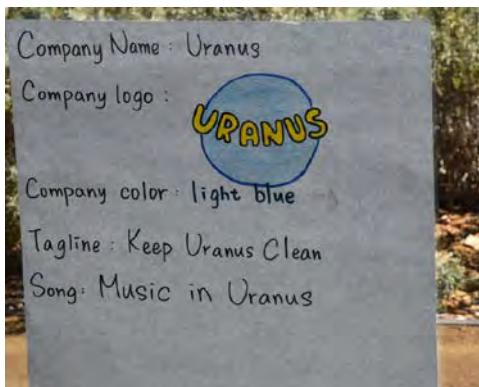 Company Name : Uranus
Company logo :
URANUS
Company color : light blue
Tagline : Keep Uranus Clean
Song: Music in Uranus